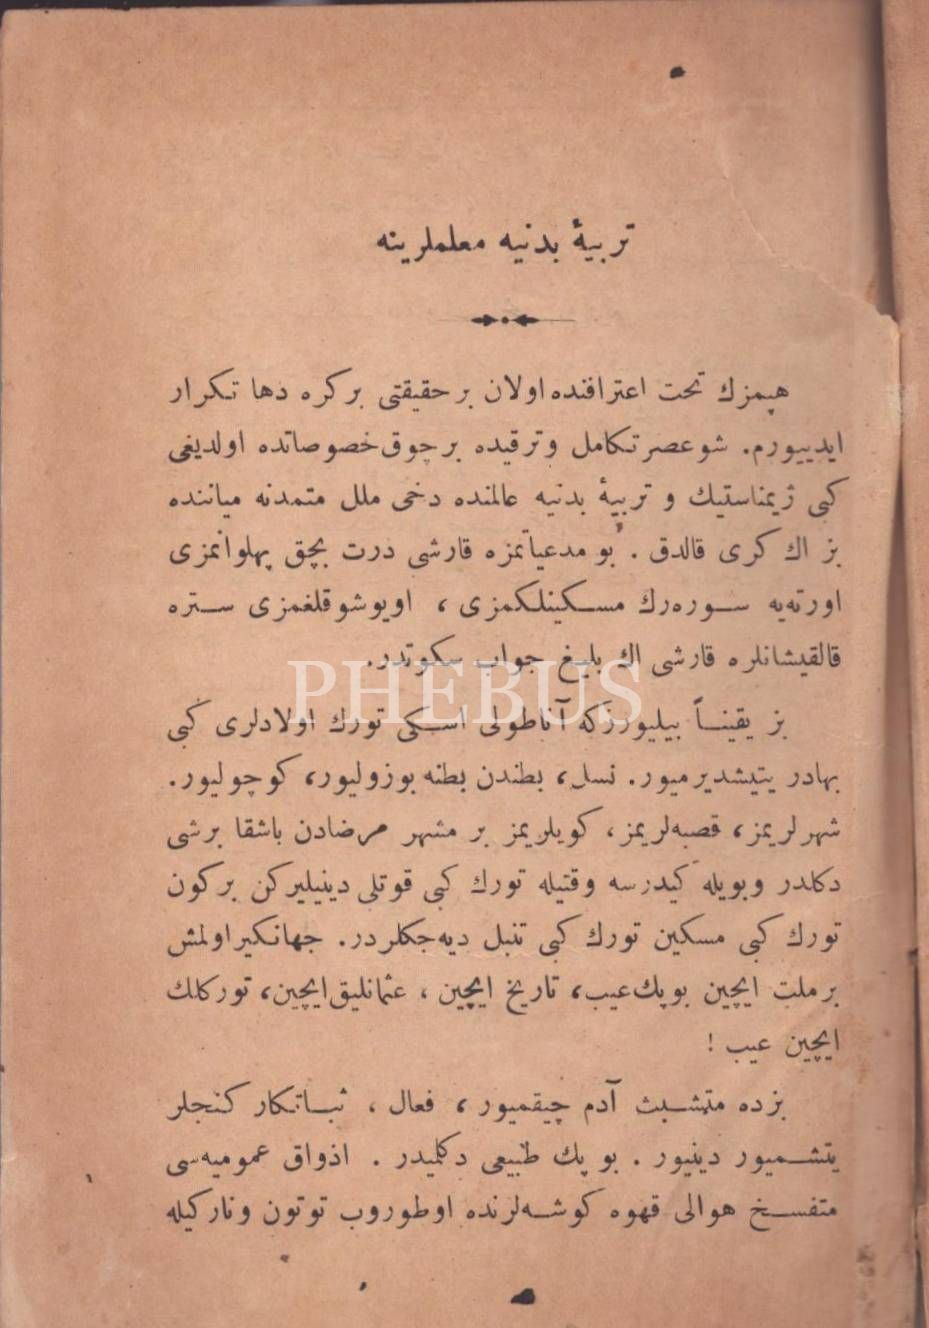 تربیهٔ بدنیه معلملرینه
همپزك تحت اعترافنده اولان برحقیقتی برکره دها تکرار
ایدییورم. شو عصر تکامل وترقیده برچوق خصوصاتده اولدیغی
کبی ژیمناستیك و تربیهٔ بدنیه عالمنده دخی ملل متمدنه میاننده
بز اك کری قالدق . بو مدعیاتمزه قارشی درت بچق پهلوانمزی
اورته‌یه سوره‌رك مسکینلکمزی ، اویوشوقلغمزی ستره
قالقیشانلره قارشی اك بلیغ جواب سکوتدر.
PHEBUS
بز یقیناً بیلیورزکه آناطولی اسکی تورك اولادلری کبی
بهادر یتیشدیرمیور. نسل، بطندن بطنه بوزولیور، کوچولیور.
شهرلریمز، قصبه‌لریمز، کویلریمز بر مشهر مرضادن باشقا برشی
دکلدر وبویله کیدرسه وقتیله تورك کبی قوتلی دینیلیرکن برکون
تورك کبی مسکین تورك کبی تنبل دیه‌جکلردر. جهانکیر اولمش
برملت ایچین بوپك عیب، تاریخ ایچین ، عثمانلیق ایچین، تورکلك
ایچین عیب !
بزده متشبث آدم چیقمیور، فعال ، ثباتکار کنجلر
یتشمیور دینیور . بو پك طبیعی دکلمیدر . اذواق عمومیه‌سی
متفسخ هوالی قهوه کوشه‌لرنده اوطوروب توتون ونارکیله